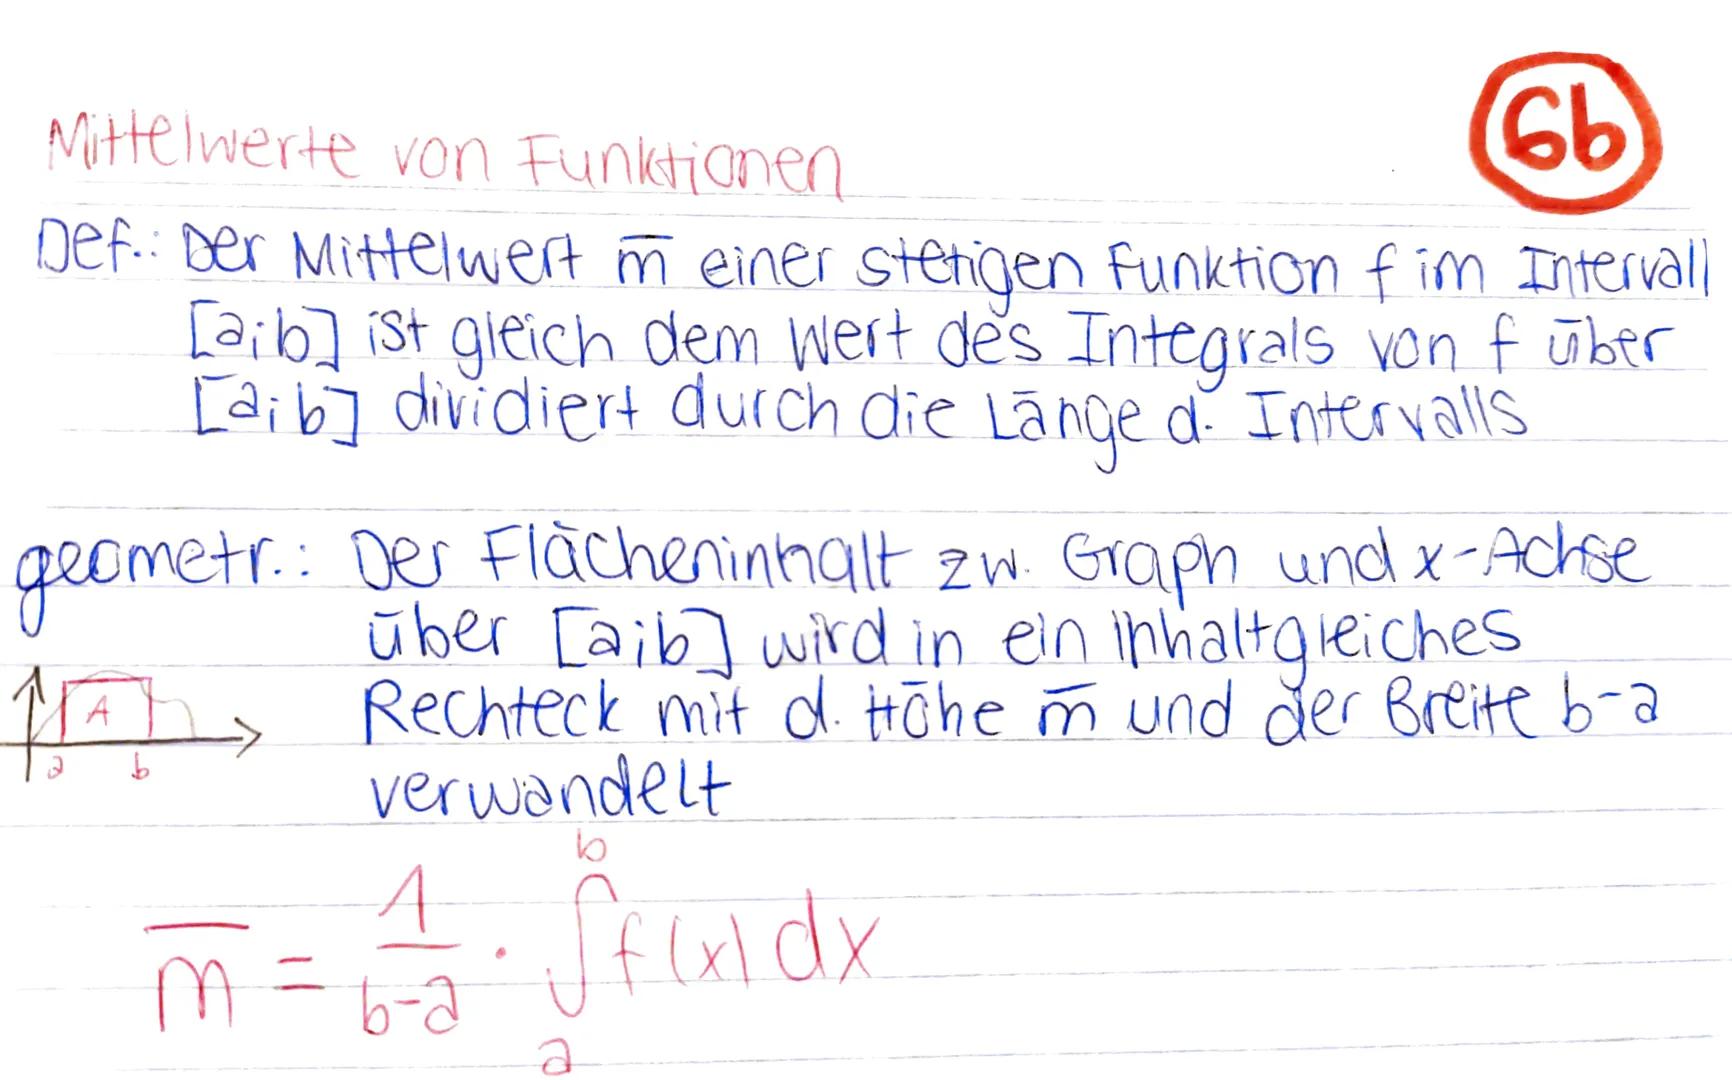 Mittelwerte von Funktionen
6b
Def.: Der Mittelwert m̅ einer stetigen Funktion f im Intervall
[a;b] ist gleich dem Wert des Integrals von f über
[a;b] dividiert durch die Länge d. Intervalls
geometr.: Der Flächeninhalt zw. Graph und x-Achse
über [a;b] wird in ein inhaltgleiches
Rechteck mit d. Höhe m̅ und der Breite b-a
verwandelt
A
a b
m̅ = 1/(b-a) · ∫_a^b f(x) dx